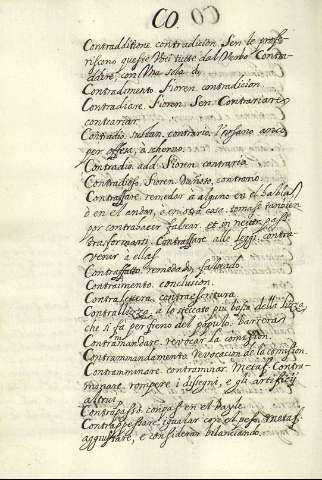 CO
Contradditione contradicion. Sen. lo profe
riscano queste voci tutte dal Verbo Contra
dicere, con una sola d,
Contradimento Fioren. contradicion
Contradiare Fioren. Sen. Contrariare
contrariar
Contradio. sustan. contrario, l'usano anco
per offesa, o scherno.
Contradio. add. Fioren. contrario
Contradioso. Fioren. dañoso, contrario.
Contraffare. remedar a alguno en el habla
ò en el andar, o en otra cosa. tomase tambien
por contrahacer falsear. et in neutr. pass.
trasformarsi. Contraffare alle leggi. contra-
venir a ellas
Contraffatto. remedado, falsado
Contraimento. conclusion.
Contralettera. contraescritura
Contrallizza. a lo steccato piu basso della lizza,
che si fa per freno del populo. barrera
Contramandare. revocar la comission.
Contrammandamento revocacion de la comission.
Contramminare. contraminar. Metaf. Contra-
minare. rompere i disegni, e gli artificij
altrui
Contropasso. conpas en el bayle.
Contrappessare. igualar con el peso, metaf.
aggiustare, e considerar bilanciando.